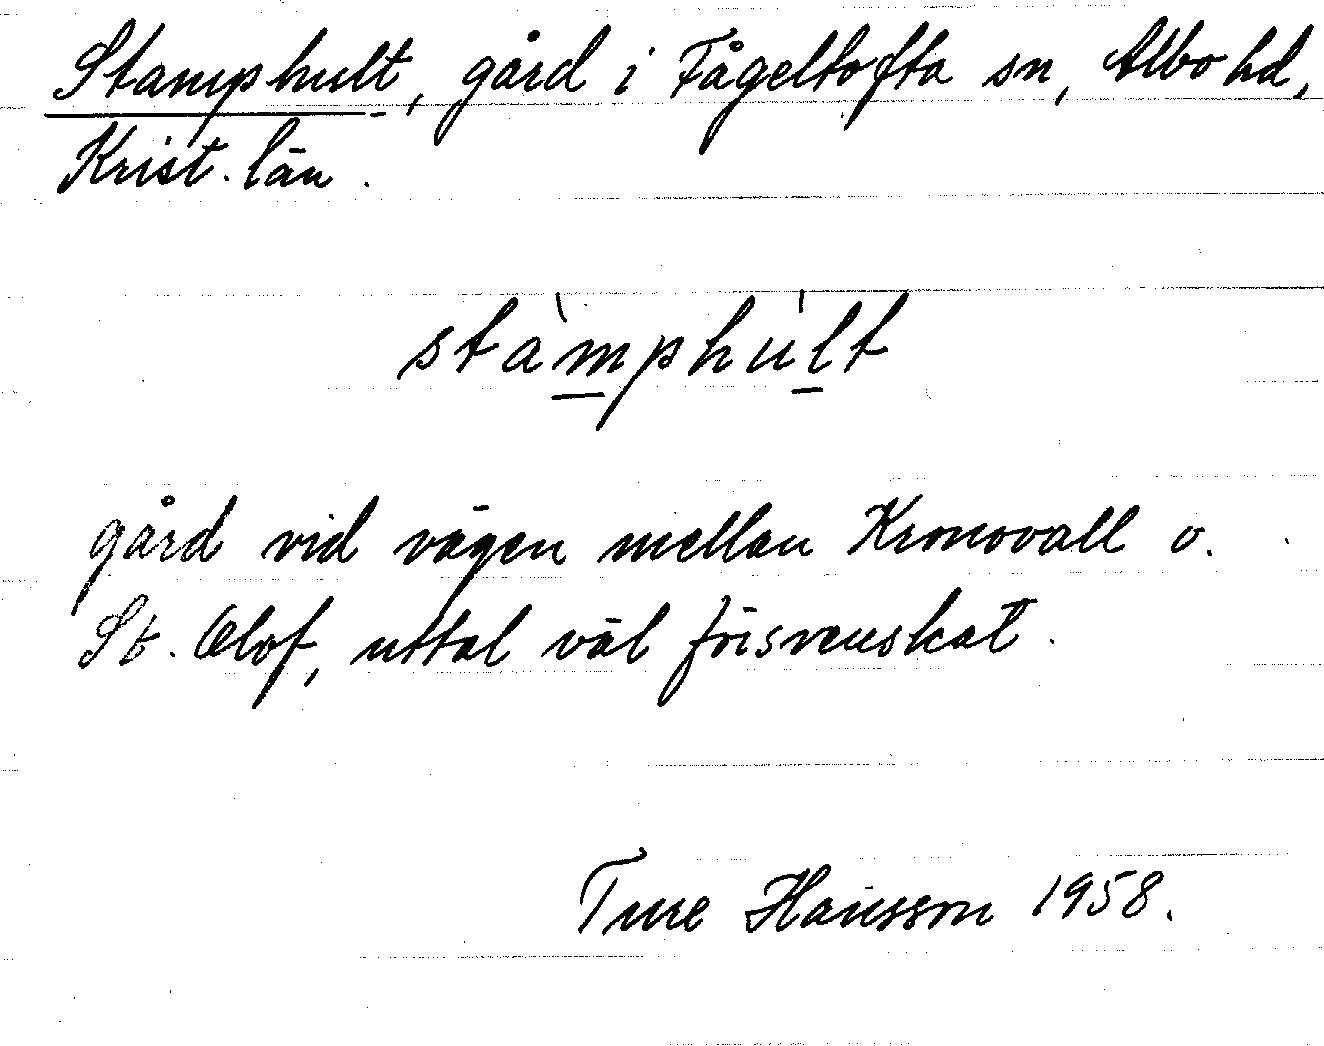 Stamphult, gård i Fågeltofta sn, Albo hd,
Krist. län.
stàm̲phùl̲t
gård vid vägen mellan Kronovall o.
St. Olof, uttal väl försvenskat.
Ture Hansson 1958.